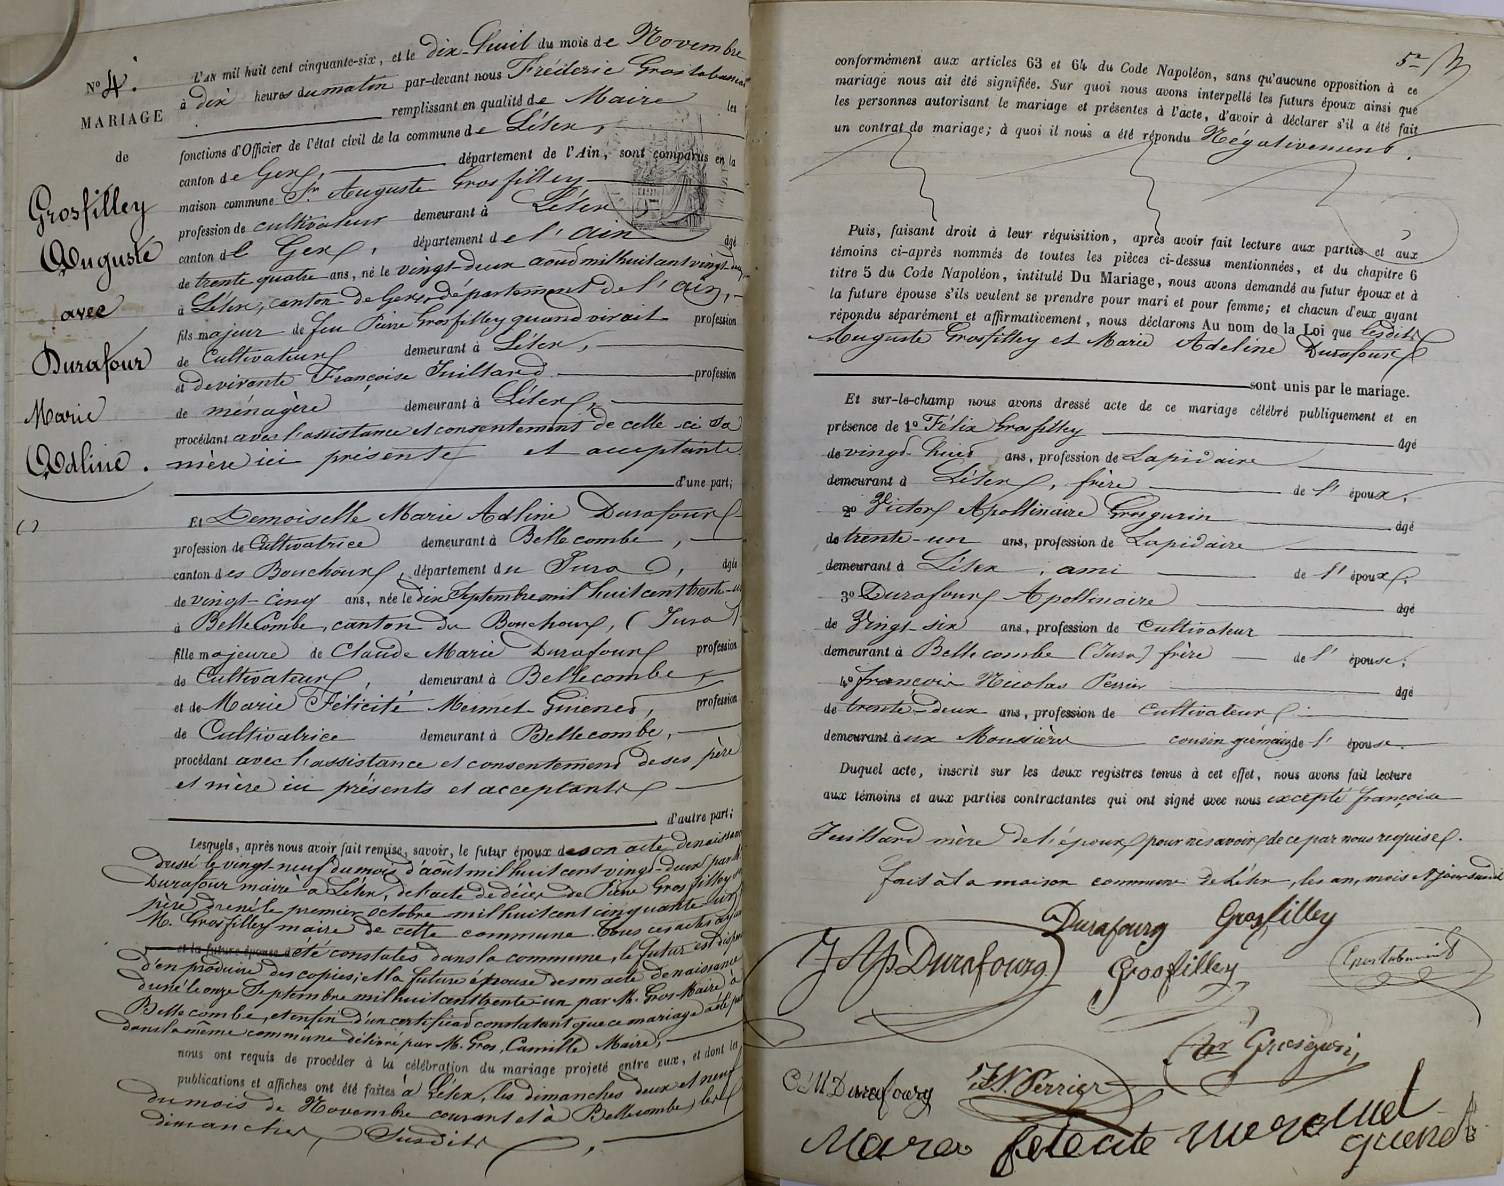 N° 4.
MARIAGE
de
Grosfilley
Auguste
avec
Durafour
Marie
Adline.
L'AN mil huit cent cinquante-six, et le dix-huit du mois de Novembre
à dix heures du matin par-devant nous Fréderic Grostabussiat
remplissant en qualité de Maire les
fonctions d'Officier de l'état civil de la commune de Lélex,
canton de Gex, département de l'Ain, sont comparus en la
maison commune Sr. Auguste Grosfilley
profession de cultivateur demeurant à Lélex
canton de Gex, département de l'ain âgé
de trente quatre ans, né le vingt-deux aout mil huit cent vingt deux
à Lélex, canton de Gex, département de l'ain,
fils majeur de feu Pierre Grosfilley quand vivait profession
de Cultivateur demeurant à Lélex,
et de vivante Françoise Juilland profession
de ménagère demeurant à Lélex,
procédant avec l'assistance et consentement de celle-ci sa
mère ici présente et acceptante
d'une part;
Et Demoiselle Marie Adline Durafour
profession de Cultivatrice demeurant à Bellecombe,
canton des Bouchoux, département du Jura, âgée
de vingt-cinq ans, née le dix Septembre mil huit cent trente-un
à Bellecombe, canton du Bouchoux, (Jura)
fille majeure de Claude Marie Durafour profession
de Cultivateur, demeurant à Bellecombe,
et de Marie Félicité Mermet Guienet, profession
de Cultivatrice demeurant à Bellecombe,
procédant avec l'assistance et consentement de ses père
et mère ici présents et acceptants
d'autre part;
Lesquels, après nous avoir fait remise, savoir, le futur époux de son acte de naissance
dusié le vingt-neuf du mois d'août mil huit cent vingt-deux par M.
Durafour maire à Lélex, de l'acte de décès de Pierre Grosfilley son
père drené le premier octobre mil huit cent cinquante six
M. Grosfilley maire de cette commune. Tous ces actes ayant
et la future épouse d été constatés dans la commune, le futur est dispensé
d'en produire des copies; et la future épouse de son acte de naissance
dusié le onze Septembre mil huit cent trente-un par M. Gros Maire à
Bellecombe, et enfin d'un certificat constatant que ce mariage a été publié
dans la même commune délivré par M. Gros, Camille Maire,
nous ont requis de procéder à la célébration du mariage projeté entre eux, et dont les
publications et affiches ont été faites à Lélex, les dimanches deux et neuf
du mois de Novembre courant et à Bellecombe les
dimanches Susdits,
conformément aux articles 63 et 64 du Code Napoléon, sans qu'aucune opposition à ce
mariage nous ait été signifiée. Sur quoi nous avons interpellé les futurs époux ainsi que
les personnes autorisant le mariage et présentes à l'acte, d'avoir à déclarer s'il a été fait
un contrat de mariage; à quoi il nous a été répondu Négativement.
Puis, faisant droit à leur réquisition, après avoir fait lecture aux parties et aux
témoins ci-après nommés de toutes les pièces ci-dessus mentionnées, et du chapitre 6
titre 5 du Code Napoléon, intitulé Du Mariage, nous avons demandé au futur époux et à
la future épouse s'ils veulent se prendre pour mari et pour femme; et chacun d'eux ayant
répondu séparément et affirmativement, nous déclarons Au nom de la Loi que lesdits
Auguste Grosfilley et Marie Adeline Durafour
sont unis par le mariage.
Et sur-le-champ nous avons dressé acte de ce mariage célébré publiquement et en
présence de 1° Félix Grosfilley âgé
de vingt-huit ans, profession de Lapidaire
demeurant à Lélex, frère de l'époux.
2° Victor Apollinaire Grosgurin âgé
de trente-un ans, profession de Lapidaire
demeurant à Lélex, ami de l'époux.
3° Durafour Apollinaire âgé
de Vingt-six ans, profession de Cultivateur
demeurant à Bellecombe (Jura) frère de l'épouse.
4° françois Nicolas Perrier âgé
de trente-deux ans, profession de Cultivateur
demeurant aux Moussières cousin germain de l'épouse.
Duquel acte, inscrit sur les deux registres tenus à cet effet, nous avons fait lecture
aux témoins et aux parties contractantes qui ont signé avec nous excepté françoise
Juilland mère de l'époux pour ne savoir de ce par nous requise.
fait à la maison commune de Lélex, les an, mois et jour susdit
Durafourg Grosfilley
J Ap Durafourg Grosfilley Grostabussiat
Vr Grosgurin
C M Durafourg F. N. Perrier
Marea feleacite mermet
guenet